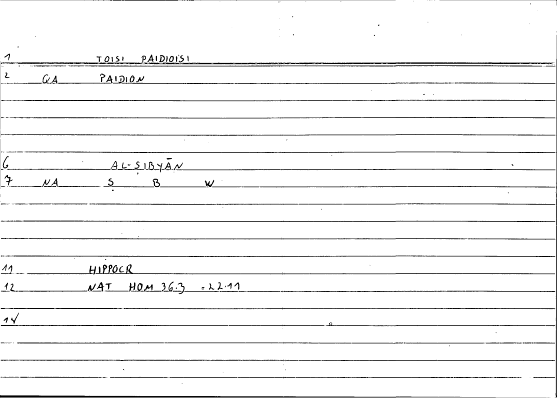 1 TOISI PAIDIOISI
2 GA PAIDION
6 AL-SIBYĀN
7 NA S B W
11 HIPPOCR
12 NAT HOM 36.3 -22.11